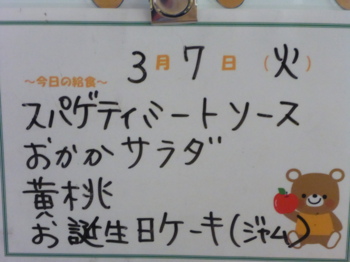 3月7日(火)
～今日の給食～
スパゲティミートソース
おかかサラダ
黄桃
お誕生日ケーキ(ジャム)